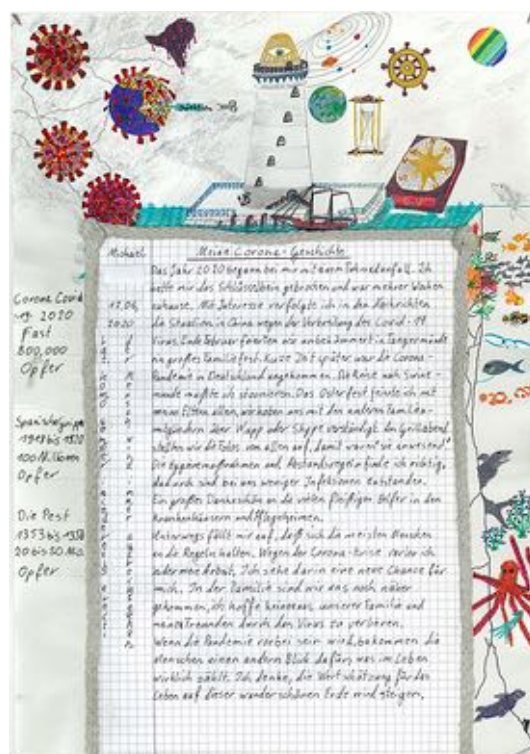 Michael
Meine Corona-Geschichte
Das Jahr 2020 begann bei mir mit einem Fahrradunfall. Ich
hatte mir das Schlüsselbein gebrochen und war mehrere Wochen
17.06. zuhause. Mit Interesse verfolgte ich in den Nachrichten
2020 die Situation in China wegen der Verbreitung des Covid-19
Virus. Ende Februar feierten wir in Tangermünde
ein großes Familienfest. Kurze Zeit später war die Corona-
Pandemie in Deutschland angekommen. Die Reise nach Swine-
münde mußte ich stornieren. Das Osterfest feierte ich mit
meinen Eltern allein, wir haben uns mit den anderen Familien-
mitgliedern über WApp oder Skype verständigt. Am Grillabend
stellten wir die Fotos von allen auf, damit waren "sie anwesend".
Die Hygienemaßnahmen und Abstandsregeln finde ich richtig,
dadurch sind bei uns weniger Infektionen entstanden.
Ein großes Dankeschön an die vielen fleißigen Helfer in den
Krankenhäusern und Pflegeheimen.
Unterwegs fällt mir auf, daß sich die meisten Menschen
an die Regeln halten. Wegen der Corona-Krise verlor ich
meine Arbeit. Ich sehe darin eine neue Chance für
mich. In der Familie sind wir uns noch näher
gekommen, ich hoffe keinen aus unserer Familie und
meinen Freunden durch den Virus zu verlieren.
Wenn die Pandemie vorbei sein wird, bekommen die
Menschen einen andern Blick dafür, was im Leben
wirklich zählt. Ich denke, die Wertschätzung für das
Leben auf dieser wunderschönen Erde wird steigen.
Corona Covid
-19 2020
Fast
800,000
Opfer
Spanische Grippe
1918 bis 1920
100 Millionen
Opfer
Die Pest
1353
20 bis 50 Mio.
Opfer